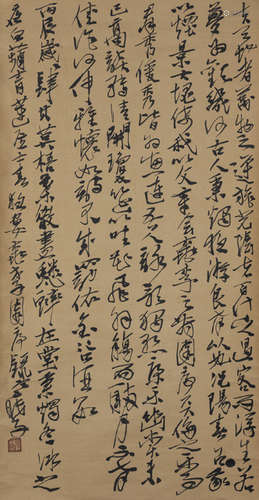 夫天地者萬物之逆旅光陰者百代之過客而浮生若
夢為歡幾何古人秉燭夜遊良有以也況陽春召我
以煙景大塊假我以文章會桃李之芳園序天倫之樂事
群季俊秀皆為惠連吾人詠歌獨慚康樂幽賞未
已高談轉清開瓊筵以坐花飛羽觴而醉月不有
佳作何伸雅懷如詩不成罰依金谷酒數
丙辰歲
春夜宴桃李園序